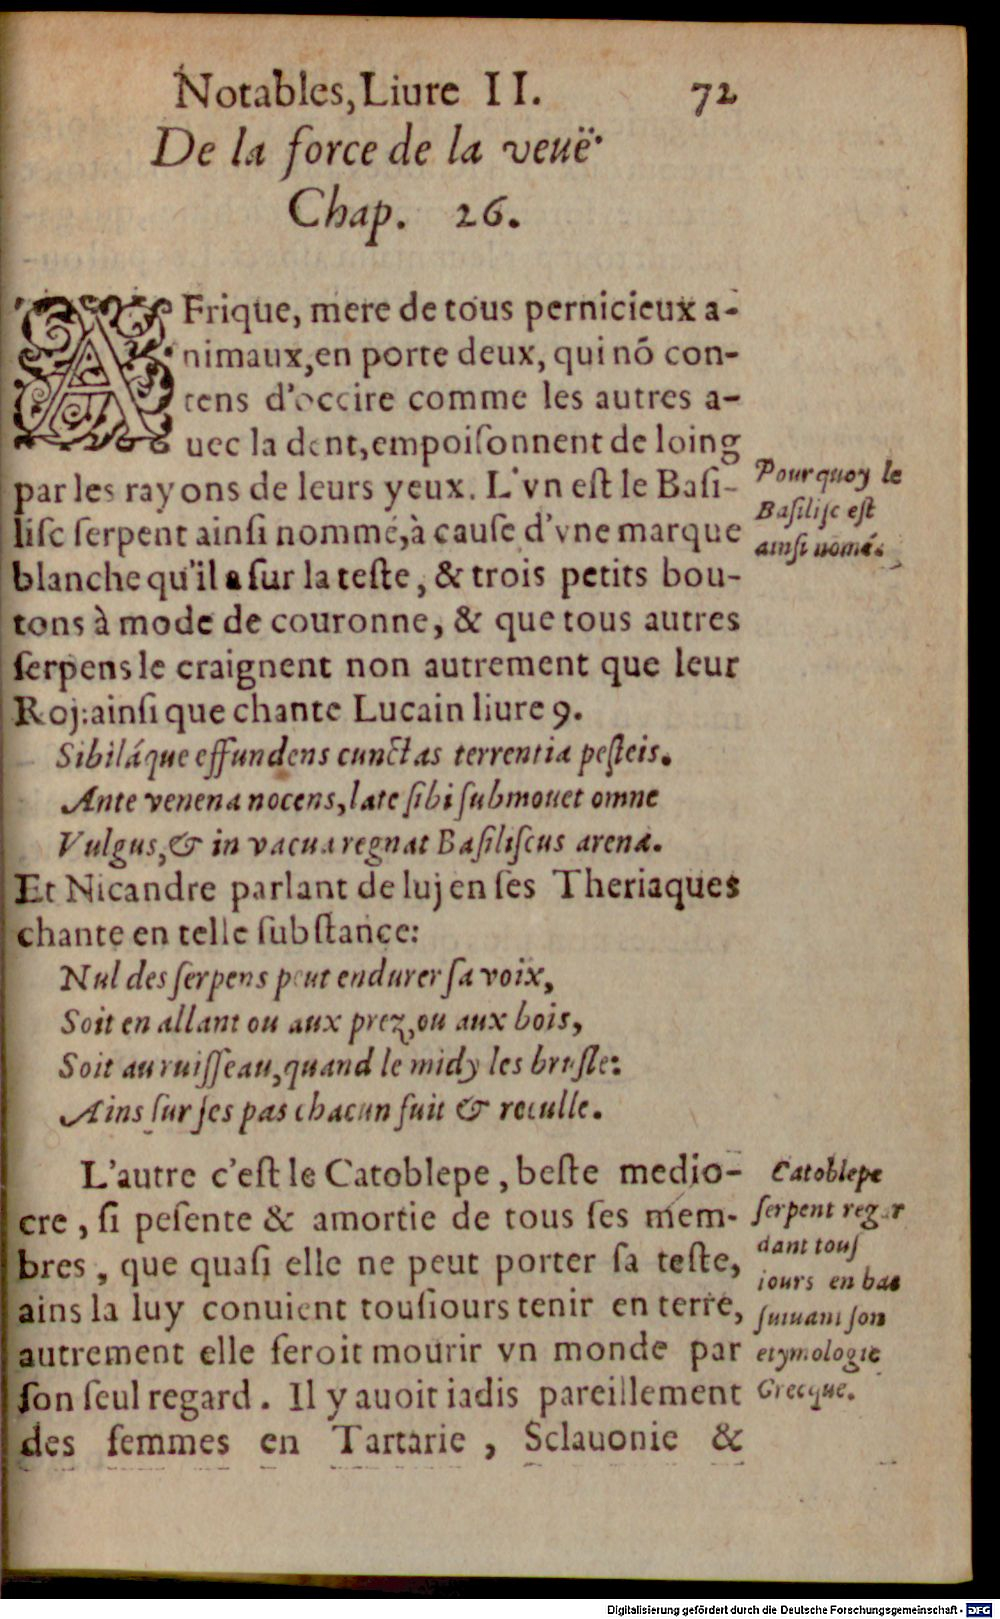 Notables, Liure II. 72
De la force de la veuë.
Chap. 26.
AFrique, mere de tous pernicieux a-
nimaux, en porte deux, qui nõ con-
tens d'occire comme les autres a-
uec la dent, empoiſonnent de loing
par les rayons de leurs yeux. L'vn eſt le Baſi-
liſc ſerpent ainſi nommé, à cauſe d'vne marque
blanche qu'il a ſur la teſte, & trois petits bou-
tons à mode de couronne, & que tous autres
ſerpens le craignent non autrement que leur
Roj: ainſi que chante Lucain liure 9.
Sibiláque effundens cunctas terrentia peſteis.
Ante venena nocens, late ſibi ſubmouet omne
Vulgus, & in vacua regnat Baſiliſcus arena.
Et Nicandre parlant de luj en ſes Theriaques
chante en telle ſubſtance:
Nul des ſerpens peut endurer ſa voix,
Soit en allant ou aux prez, ou aux bois,
Soit au ruiſſeau, quand le midy les bruſle:
Ains ſur ſes pas chacun fuit & reculle.
L'autre c'eſt le Catoblepe, beſte medio-
cre, ſi peſente & amortie de tous ſes mem-
bres, que quaſi elle ne peut porter ſa teſte,
ains la luy conuient touſiours tenir en terre,
autrement elle feroit mourir vn monde par
ſon ſeul regard. Il y auoit iadis pareillement
des femmes en Tartarie, Sclauonie &
Pourquoy le
Baſiliſc eſt
ainſi nomé.
Catoblepe
ſerpent regar
dant touſ
iours en bas
ſuiuant ſon
etymologie
Grecque.
Digitalisierung gefördert durch die Deutsche Forschungsgemeinschaft - DFG